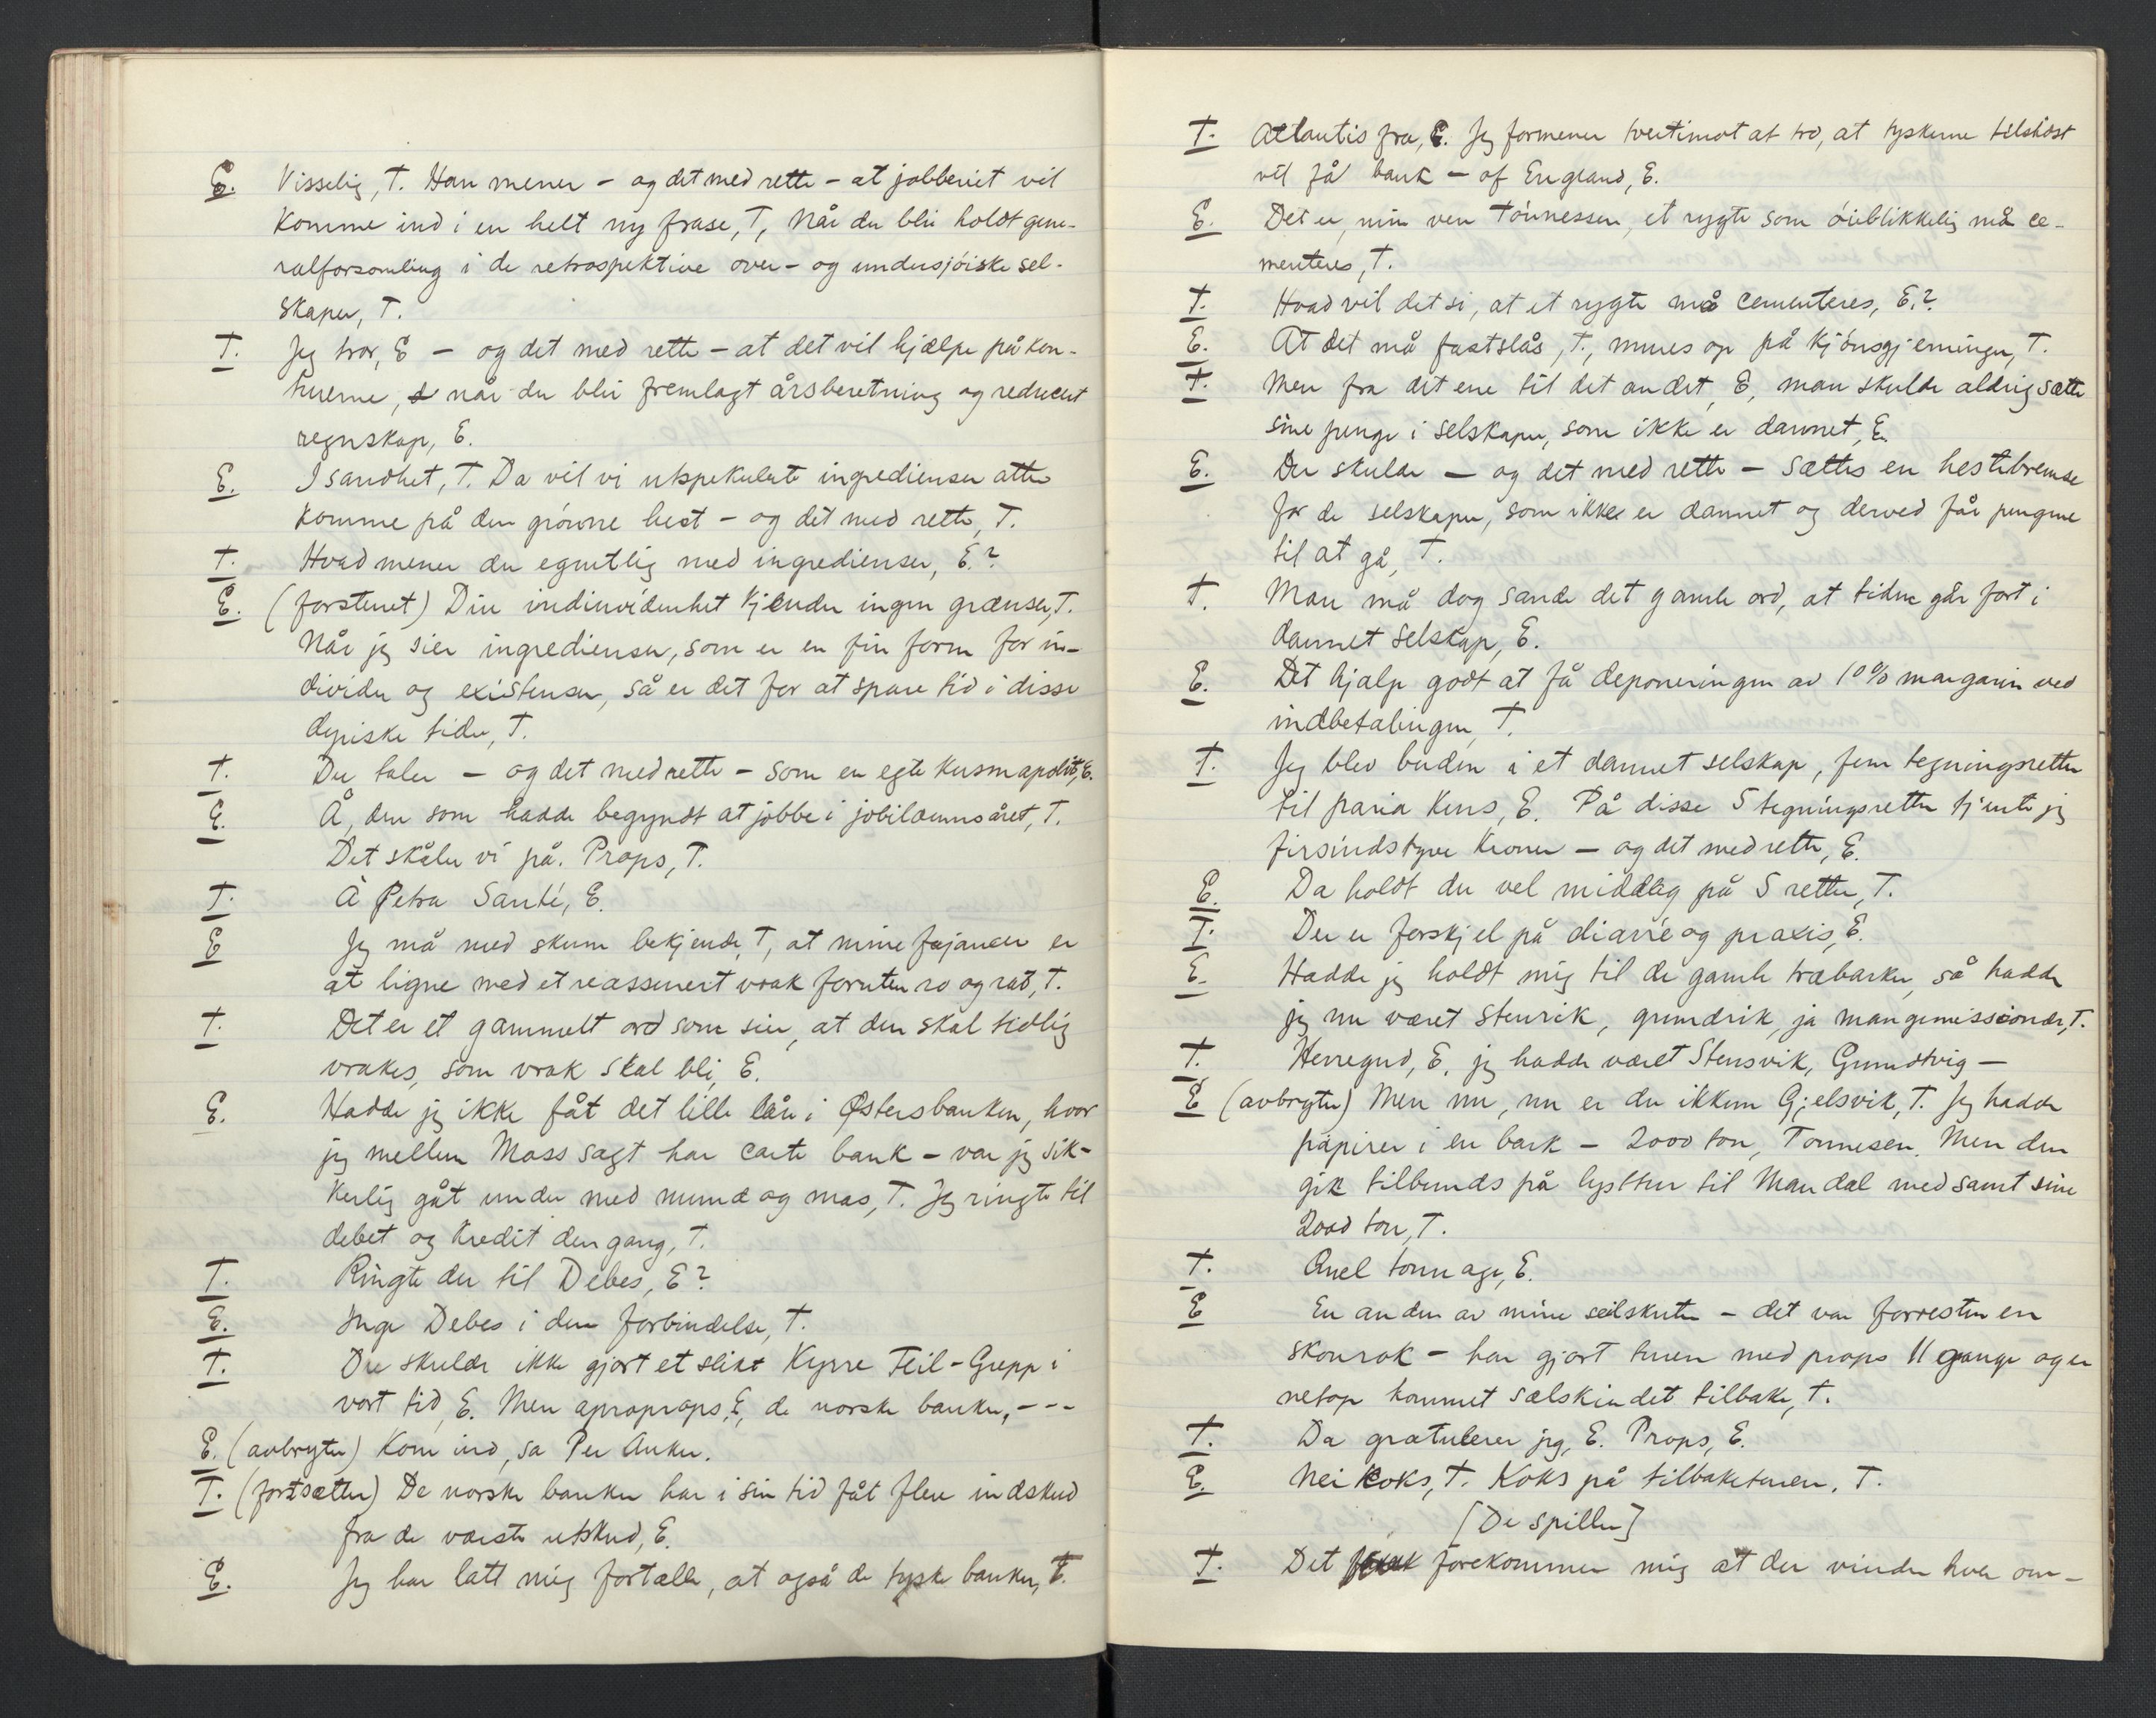 E. Visselig, T. Han mener - og det med rette - at jobberiet vil
komme ind i en helt ny frase, T, når der blir holdt gene-
ralforsamling i de retrospektive over- og undersjøiske sel-
skaper, T.
T. Jeg tror, E - og det med rette - at det vil hjælpe på kon-
tuerne, når der blir fremlagt årsberetning og reducert
regnskap, E.
E. I sandhet, T. Da vil vi utspekulerte ingredienser atter
komme på den grønne hest - og det med rette, T.
T. Hvad mener du egentlig med ingredienser, E.?
E. (forstenet) Din individenhet kjender ingen grænser, T.
Når jeg sier ingredienser, som er en fin form for in-
divider og existenser, så er det for at spare tid i disse
dyriske tider, T.
T. Du taler - og det med rette - som en egte kusmapolit, E.
E. Å, den som hadde begyndt at jobbe i jobilæumsåret, T.
Det skåler vi på. Props, T.
T. À Petra Santé, E.
E Jeg må med skum bekjende, T, at mine fajancer er
at ligne med et reassurert vrak foruten ro og rat, T.
T. Det er et gammelt ord som sier, at den skal tidlig
vrakes, som vrak skal bli, E.
E. Hadde jeg ikke fåt det lille lån i Østersbanken, hvor
jeg mellem Moss sagt har carte bank - var jeg sik-
kerlig gåt under med mund og mas, T. Jeg ringte til
debet og kredit den gang, T.
T. Ringte du til Debes, E?
E. Inge Debes i den forbindelse, T.
T. Du skulde ikke gjort et slikt Kyrre Feil-Grepp i
vort tid, E. Men aproprops, E, de norske banker, ---
E. (avbryter) Kom ind, sa Per Anker.
T. (fortsætter) De norske banker har i sin tid fåt flere indskud
fra de værste utskud, E.
E. Jeg har latt mig fortælle, at også de tyske banker, T.
T. Atlantis fra, E. Jeg formener tvertimot at tro, at tyskerne tilsidst
vil få bank - of England, E.
E. Det er, min ven Tønnessen, et rygte som øieblikkelig må ce-
menteres, T.
T. Hvad vil det si, at et rygte må cementeres, E.?
E. At det må fastslås, T., mures op på kjønsgjerninger, T.
T. Men fra det ene til det andet, E, man skulde aldrig sætte
sine penge i selskaper, som ikke er dannet, E.
E. Der skulde - og det med rette - sættes en hestebremse
for de selskaper, som ikke er dannet og derved får pengene
til at gå, T.
T. Man må dog sande det gamle ord, at tiden går fort i
dannet selskap, E.
E. Det hjalp godt at få deponeringen av 10% margarin ved
indbetalingen, T.
T. Jeg blev buden i et dannet selskap, fem tegningsretter
til paria kurs, E. På disse 5 tegningsretter tjente jeg
firsindstyve kroner - og det med rette, E.
E. Da holdt du vel middag på 5 retter, T.
T. Der er forskjel på diarré og praxis, E.
E. Hadde jeg holdt mig til de gamle træbarker, så hadde
jeg nu været stenrik, grundrik, ja mangemissionær, T.
T. Herregud, E, jeg hadde været Stensvik, Grundtvig -
E (avbryter) Men nu, nu er du ikkun Gjelsvik, T. Jeg hadde
papirer i en bark - 2000 ton, Tønnesen. Men den
gik tilbunds på lysttur til Mandal med samt sine
2000 ton, T.
T. Quel tonnage, E.
E En anden av mine seilskuter - det var forresten en
skonrok - har gjort turen med props 11 gange og er
netop kommet sælskindet tilbake, T.
T. Da gratulerer jeg, E. Props, E.
E. Nei koks, T. Koks på tilbaketuren. T.
[De spiller]
T. Det forekommer mig at der vinder hver om-